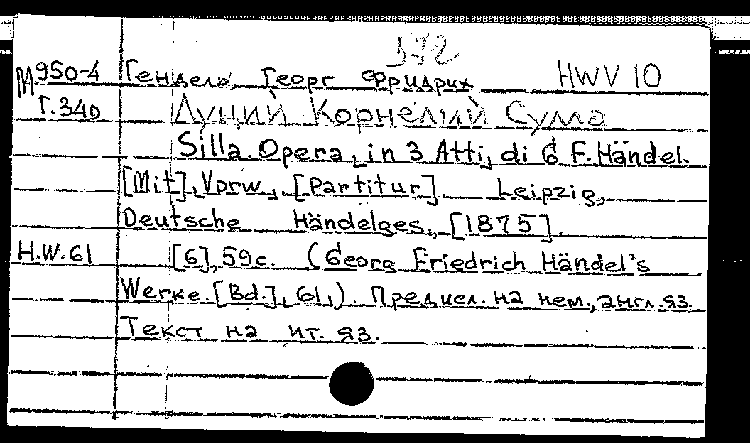 572
М950-4 Гендель, Георг Фридрих HWV 10
Г.340 Луций Корнелий Сулла
Silla. Opera, in 3 Atti, di G. F. Händel.
[Mit], Vorw., [Partitur]. Leipzig,
Deutsche Händelges., [1875].
H.W.61 [6], 59с. (Georg Friedrich Händel's
Werke. [Bd.], 61,). Предисл. на нем., англ. яз.
Текст на ит. яз.